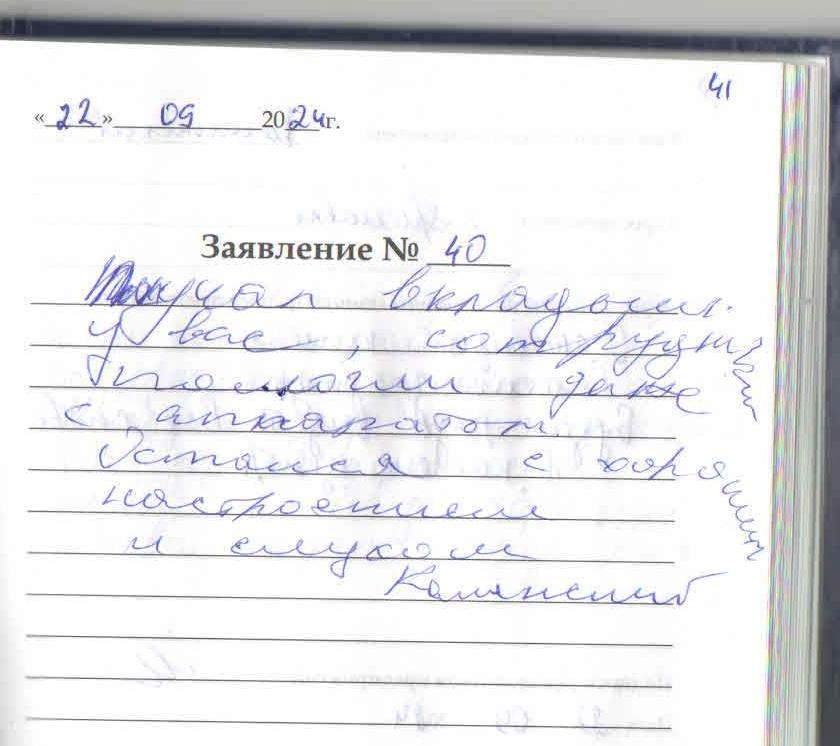 41
«22» 09 2024г.
Заявление № 40
Получал вкладыши
у вас, сотрудники
помогли даже
с аппаратом.
Остался с хорошим
настроением
и слухом